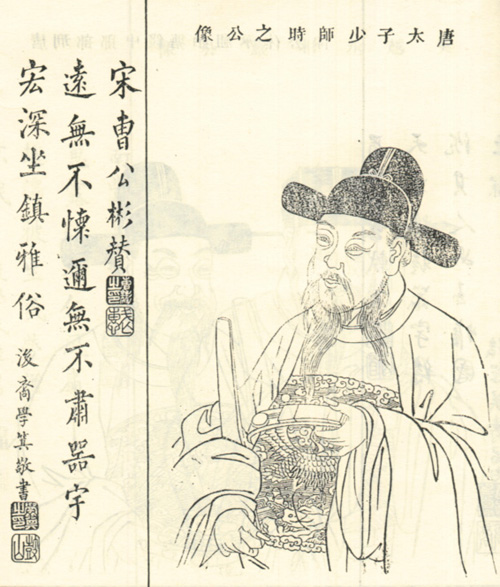 唐太子少師時之公像
宋曹公彬贊
遠無不懷邇無不肅器宇
宏深坐鎮雅俗
後裔學其敬書